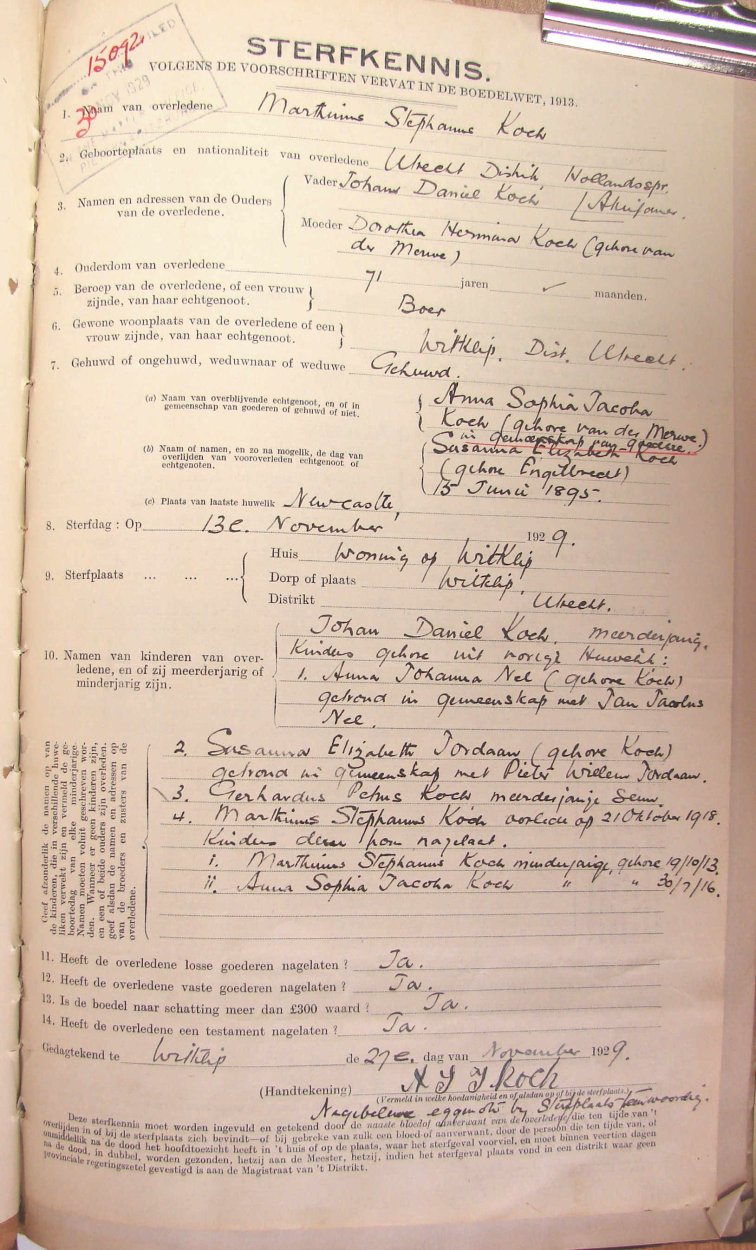 15092.
FILED
1929
30
STERFKENNIS.
VOLGENS DE VOORSCHRIFTEN VERVAT IN DE BOEDELWET, 1913.
1. Naam van overledene Marthinus Stephanus Koch
2. Geboorteplaats en nationaliteit van overledene Utrecht Distrikt, Hollandsspr.
3. Namen en adressen van de Ouders van de overledene.
Vader Johans Daniel Koch / Afrikaner.
Moeder Dorothea Hermina Koch (gebore van
der Merwe)
4. Ouderdom van overledene 71 jaren ✓ maanden.
5. Beroep van de overledene, of een vrouw
zijnde, van haar echtgenoot. Boer
6. Gewone woonplaats van de overledene of een
vrouw zijnde, van haar echtgenoot. Witklip, Dist. Utrecht.
7. Gehuwd of ongehuwd, weduwnaar of weduwe Gehuwd.
(a) Naam van overblijvende echtgenoot, en of in
gemeenschap van goederen of gehuwd of niet.
Anna Sophia Jacoba
Koch (gebore van der Merwe.)
in gemeenskap van goedere.
(b) Naam of namen, en zo na mogelik, de dag van
overlijden van vooroverleden echtgenoot of
echtgenoten.
Susanna Elizabeth Koch
(gebore Engelbrecht)
15 Junie 1895.
(c) Plaats van laatste huwelik Newcastle,
8. Sterfdag : Op 13e. November 1929.
9. Sterfplaats ... ... ...
Huis Woning op Witklip
Dorp of plaats Witklip,
Distrikt Utrecht.
10. Namen van kinderen van over-
ledene, en of zij meerderjarig of
minderjarig zijn.
Johan Daniel Koch. meerderjarig.
Kinders gebore uit vorige Huwelik:
1. Anna Johanna Nel (gebore Koch)
getroud in gemeenskap met Jan Jacobus
Nel.
Geef afzonderlik de namen op van
de kinderen, die in verschillende huwe-
liken verwekt zijn en vermeld de ge-
boortedag van elke minderjarige.
Namen moeten voluit geschreven wor-
den. Wanneer er geen kinderen zijn,
en een of beide ouders zijn overleden,
geef alsdan de namen en adressen op
van de broeders en zusters van de
overledene.
2. Susanna Elizabeth Jordaan (gebore Koch)
getroud in gemeenskap met Pieter Willem Jordaan.
3. Gerhardus Petrus Koch meerderjarige Seun.
4. Marthinus Stephanus Koch oorlede op 21 Oktober 1918.
Kinders deur hom nagelaat.
i. Marthinus Stephanus Koch minderjarige, gebore 19/10/13.
ii. Anna Sophia Jacoba Koch " " 30/7/16.
11. Heeft de overledene losse goederen nagelaten ? Ja.
12. Heeft de overledene vaste goederen nagelaten ? Ja.
13. Is de boedel naar schatting meer dan £300 waard ? Ja.
14. Heeft de overledene een testament nagelaten ? Ja.
Gedagtekend te Witklip de 27e. dag van November 1929.
(Handtekening) A S J. Koch
(Vermeld in welke hoedanigheid en of alsdan op of bij de sterfplaats.)
Nagebleve eggenote by Sterfplaats teenwoordig.
Deze sterfkennis moet worden ingevuld en getekend door de naaste bloed of aanverwant van de overledene die ten tijde van 't
overlijden in of bij de sterfplaats zich bevindt—of bij gebreke van zulk een bloed-of aanverwant, door de persoon die ten tijde van, of
onmiddellik na de dood het hoofdtoezicht heeft in 't huis of op de plaats, waar het sterfgeval voorviel, en moet binnen veertien dagen
na de dood, in dubbel, worden gezonden, hetzij aan de Meester, hetzij, indien het sterfgeval plaats vond in een distrikt waar geen
provinciale regeringszetel gevestigd is aan de Magistraat van 't Distrikt.